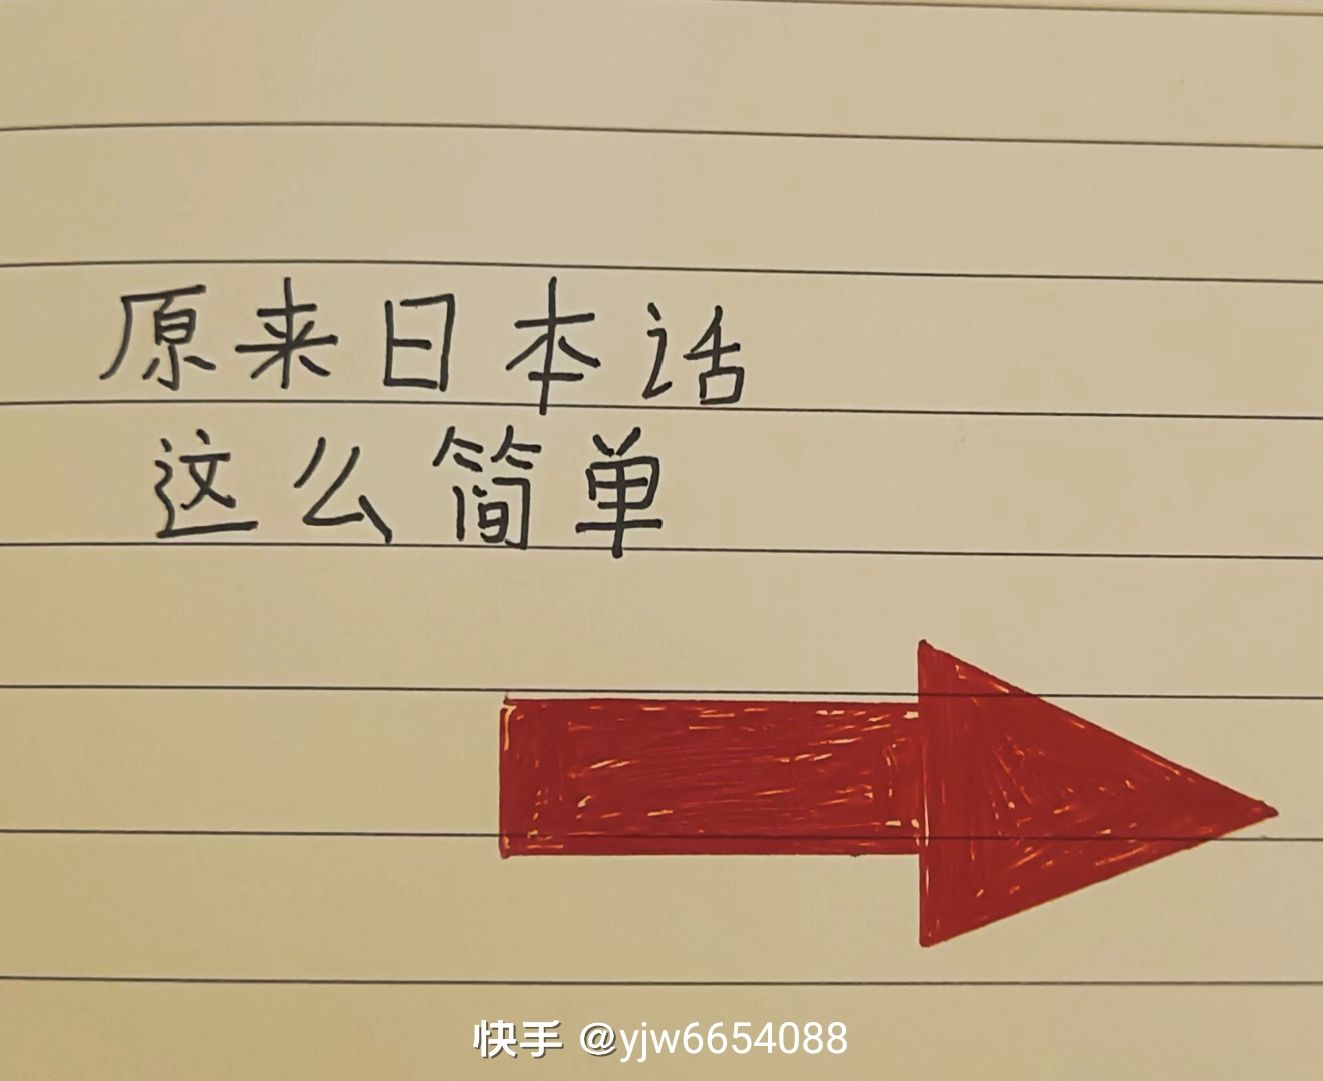 原来日本话
这么简单
快手 @yjw6654088